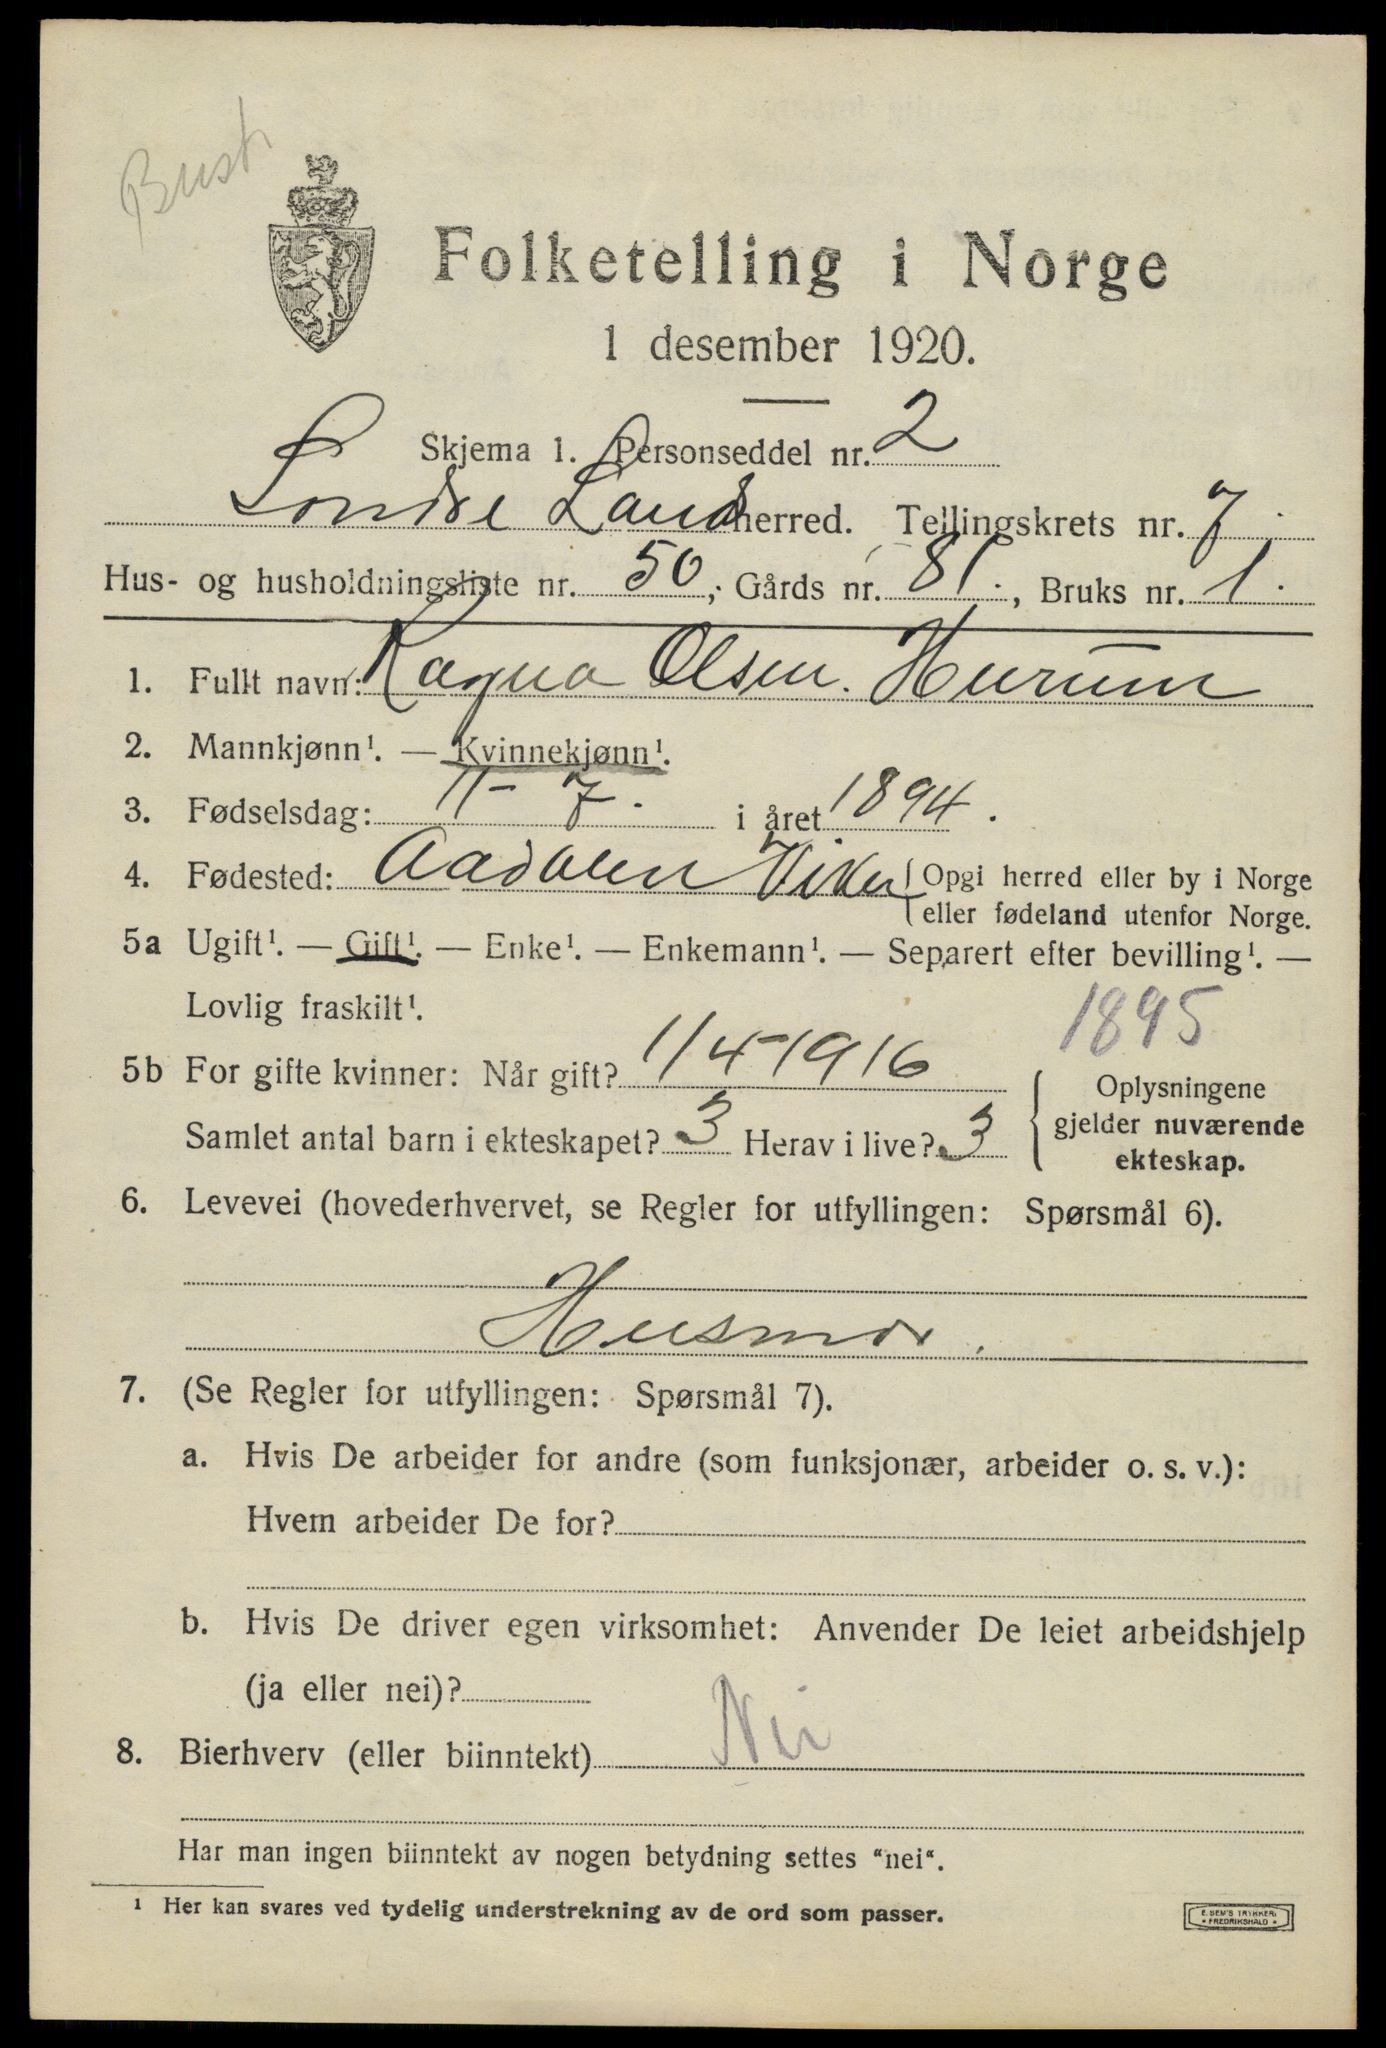 Bust
Folketelling i Norge
1 desember 1920.
Skjema 1. Personseddel nr. 2
Søndre Land herred. Tellingskrets nr. 7.
Hus- og husholdningsliste nr. 50; Gårds nr. 81., Bruks nr. 1.
1. Fullt navn: Ragna Olsen. Hurum
2. Mannkjønn¹. — Kvinnekjønn¹.
3. Fødselsdag: 11 - 7. i året 1894.
4. Fødested: Aadalen Viker Opgi herred eller by i Norge
eller fødeland utenfor Norge.
5a Ugift¹. — Gift¹. — Enke¹. — Enkemann¹. — Separert efter bevilling¹. —
Lovlig fraskilt¹.
1895
5b For gifte kvinner: Når gift? 1/4-1916
Oplysningene
gjelder nuværende
ekteskap.
Samlet antal barn i ekteskapet? 3 Herav i live? 3
6. Levevei (hovederhvervet, se Regler for utfyllingen: Spørsmål 6).
Husmor.
7. (Se Regler for utfyllingen: Spørsmål 7).
a. Hvis De arbeider for andre (som funksjonær, arbeider o. s. v.):
Hvem arbeider De for?
b. Hvis De driver egen virksomhet: Anvender De leiet arbeidshjelp
(ja eller nei)?
8. Bierhverv (eller biinntekt) Nei
Har man ingen biinntekt av nogen betydning settes “nei“.
¹ Her kan svares ved tydelig understrekning av de ord som passer.
E. SEM'S TRYKKERI
FREDRIKSHALD